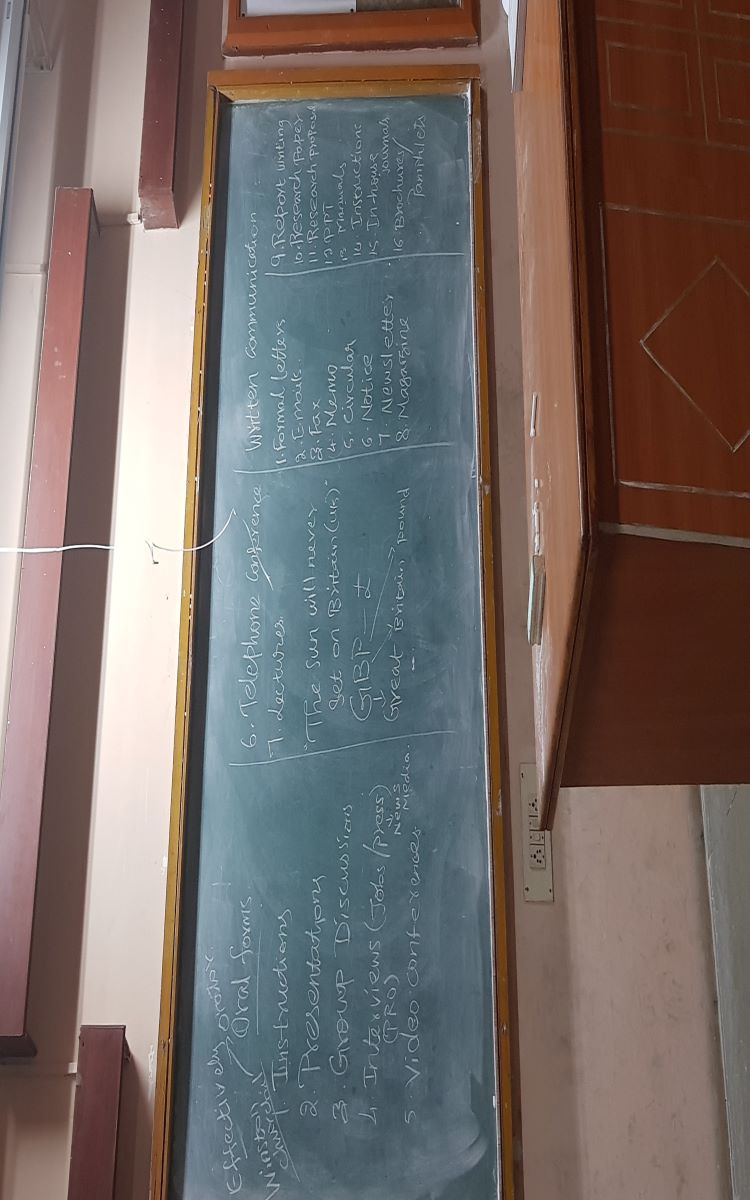 Effectively orator
Winston
churchil
Oral forms
1. Instructions
2. Presentations
3. Group Discussions
4. Interviews (Jobs/press)
(PRO)
News
Media.
5. Video conferences
6. Telephone Conference
7. Lectures.
"The sun will never
set on Britain (UK)"
GBP – £
Great Britain pound
Written Communication
1. Formal letters
2. Emails.
3. Fax
4. Memo
5. Circular
6. Notice
7. Newsletter
8. Magazine
9. Report writing
10. Research Paper
11. Research proposal
12 PPT
13 Manuals
14. Instructions
15. In-house
journals
16. Brochures/
Pamphlets